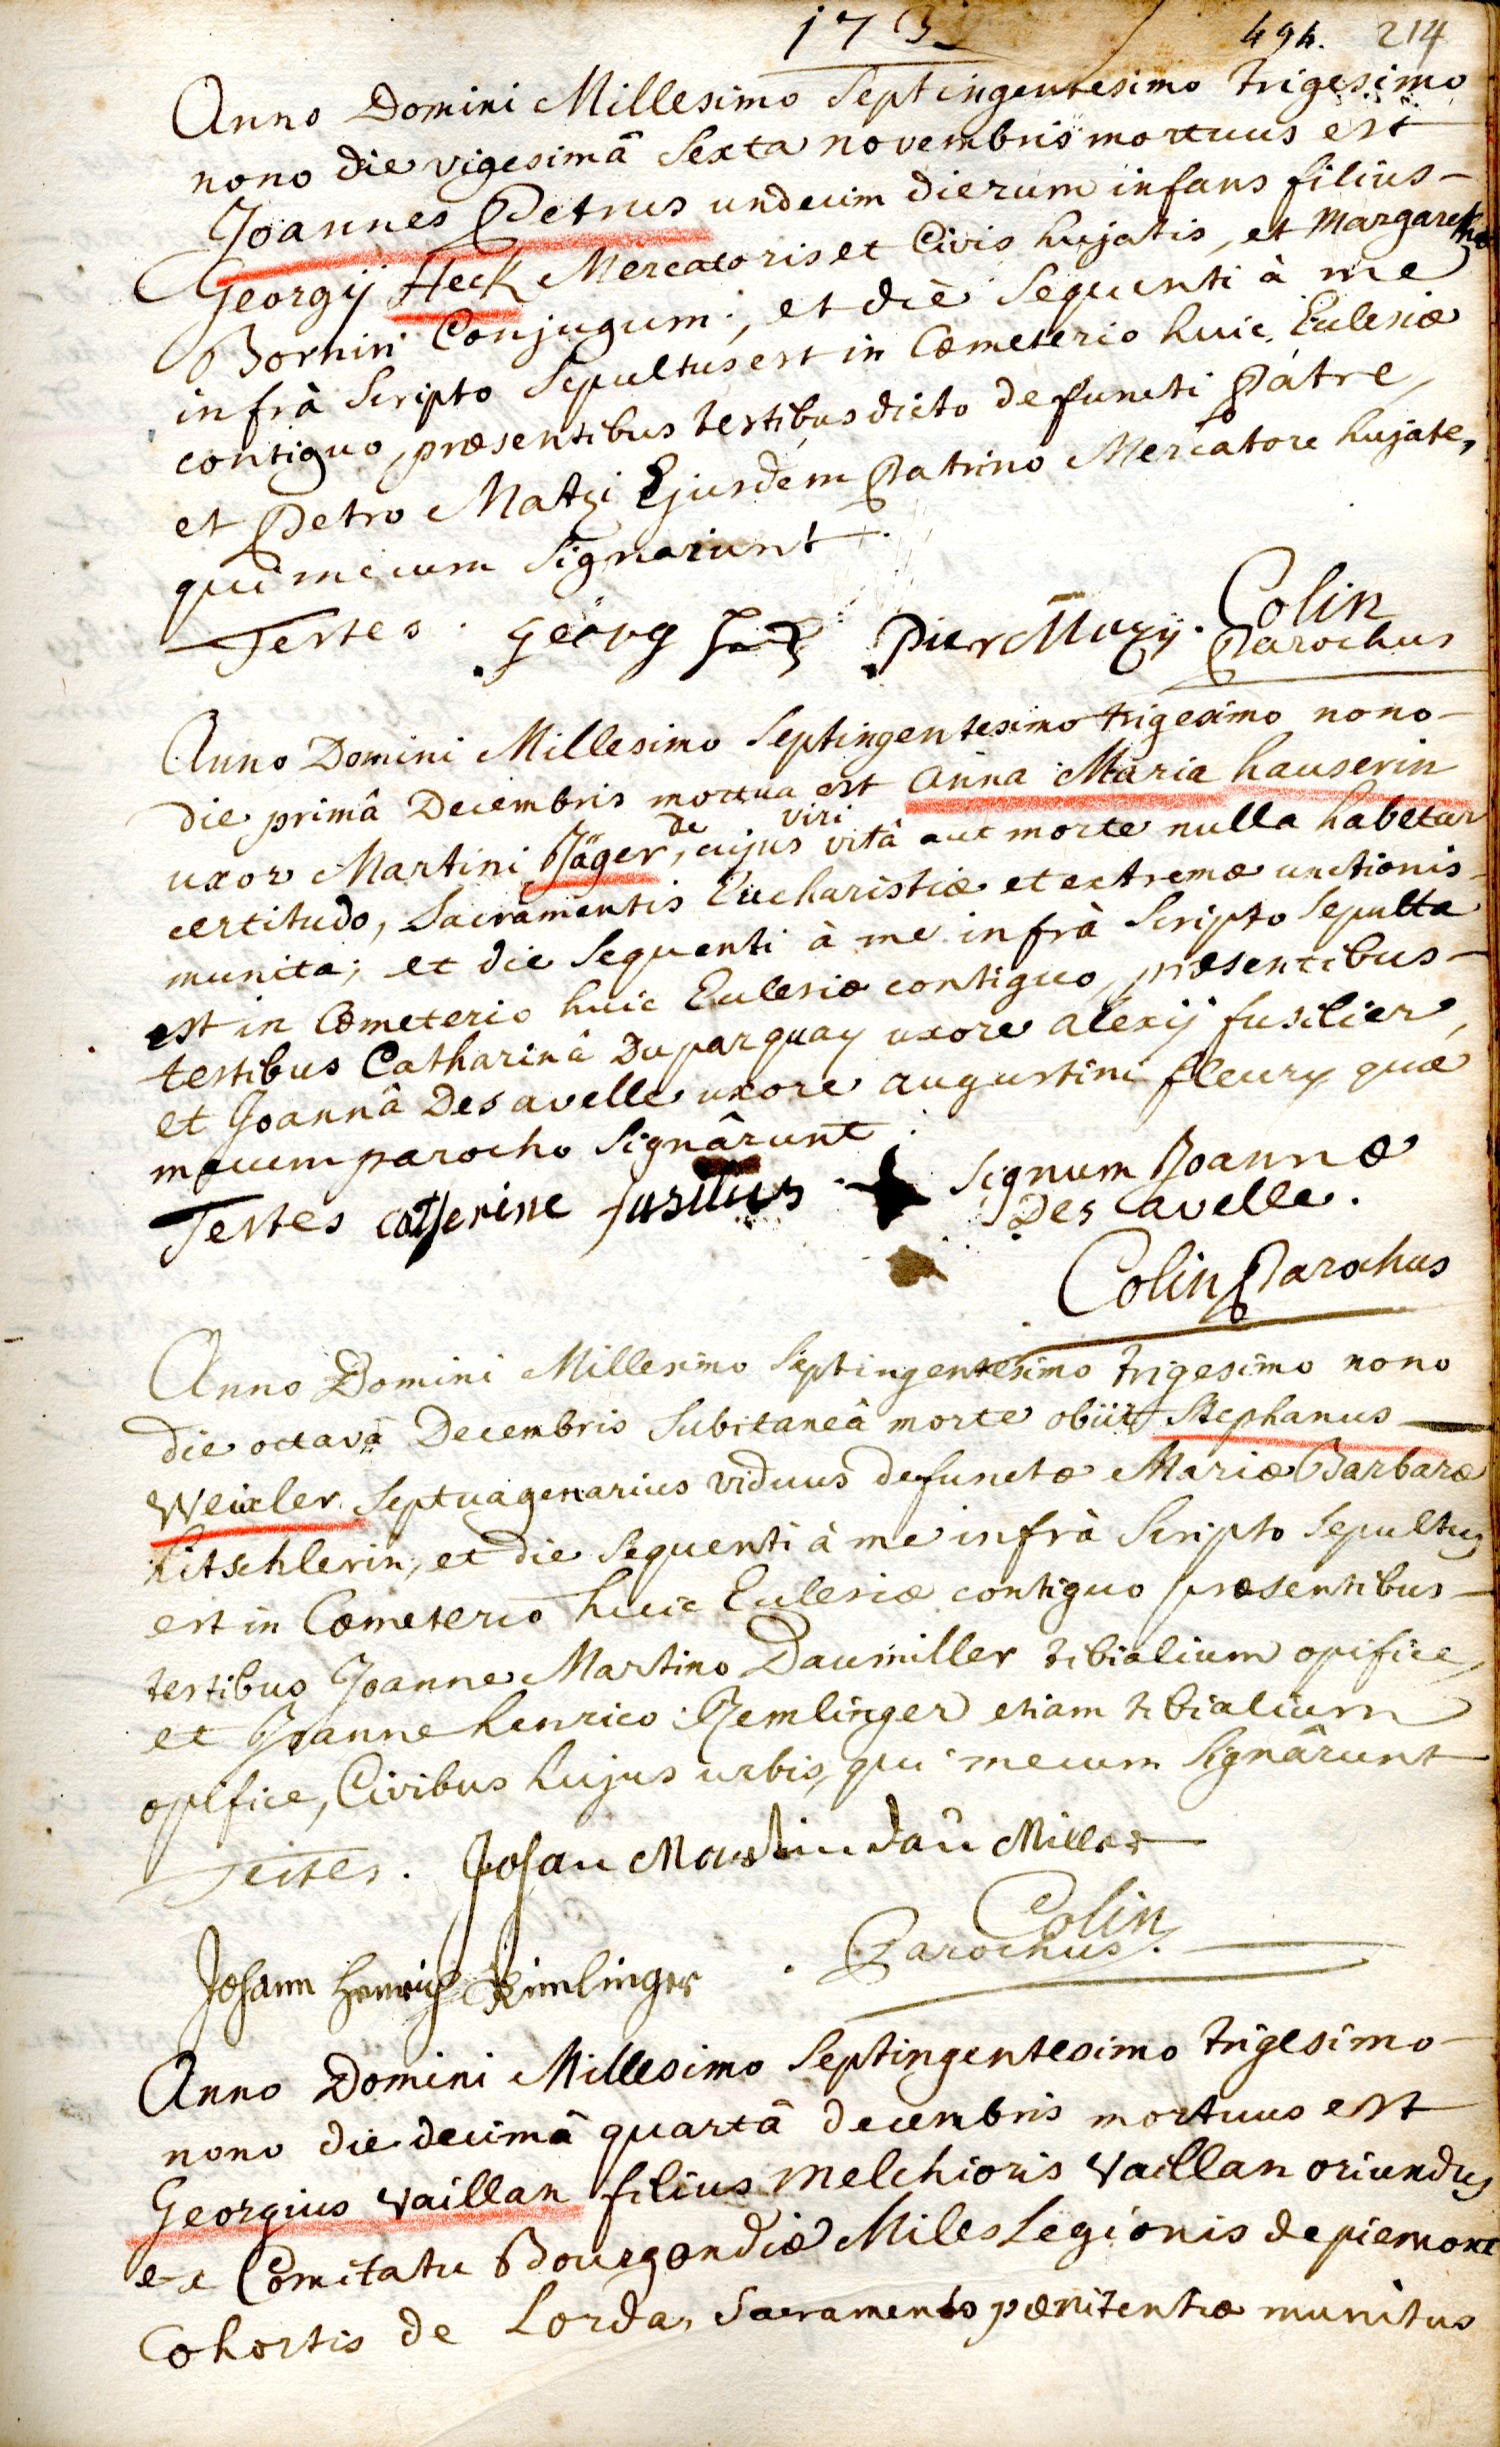 1739 494. 214
Anno Domini Millesimo Septingentesimo trigesimo
nono die vigesimâ Sexta novembris mortuus est
Joannes Petrus undecim dierum infans filius
Georgij Heck Mercatoris et Civis hujatis, et Margarethæ
Bornin Conjugum; et die Sequenti à me
infrà Scripto Sepultus est in Cœmeterio huic Eclesiæ
contiguo, præsentibus testibus dicto defuncti Patre,
et Petro Matzi Ejusdem Patrino Mercatore hujate,
qui mecum Signarunt.
Testes. georg Pier Mazij. Colin
Parochus
Anno Domini Millesimo Septingentesimo trigesimo nono
die primâ Decembris mortua est Anna Maria hauserin
uxor Martini Jäger, de cujus viri vitâ aut morte nulla habetur
certitudo, Sacramentis Eucharistiæ et extremæ unctionis
munita; et die Sequenti à me infrà Scripto Sepulta
est in Cœmeterio huic Eclesiæ contiguo, præsentibus
testibus Catharinâ Duparquay uxore alexij fusilier,
et Joannâ Desavelle uxore augustini fleury quæ
mecum parocho Signârunt.
Testes catherine fusilier Signum Joannæ
Des avelle.
Colin Parochus
Anno Domini Millesimo Septingentesimo trigesimo nono
die octavâ Decembris Subitaneâ morte obiit Stephanus
Weixler Septuagenarius viduus defunctæ Mariæ Barbaræ
Kitschlerin, et die Sequenti à me infrà Scripto Sepultus
est in Cœmeterio huic Eclesiæ contiguo præsentibus
testibus Joanne Martino Daumiller tibialium opifice,
et Joanne henrico Remlinger etiam tibialium
opifice, Civibus hujus urbis, qui mecum Signârunt
Testes. Johan Martin dau Miller
Colin
Parochus.
Johann Henrich Rimlinger
Anno Domini Millesimo Septingentesimo trigesimo
nono die decimâ quartâ decembris mortuus est
Georgius vaillan filius Melchioris vaillan oriundus
ex Comitatu Bourgondiæ Miles Legionis de piemont
Cohortis de Lorda, Sacramento pœnitentiæ munitus